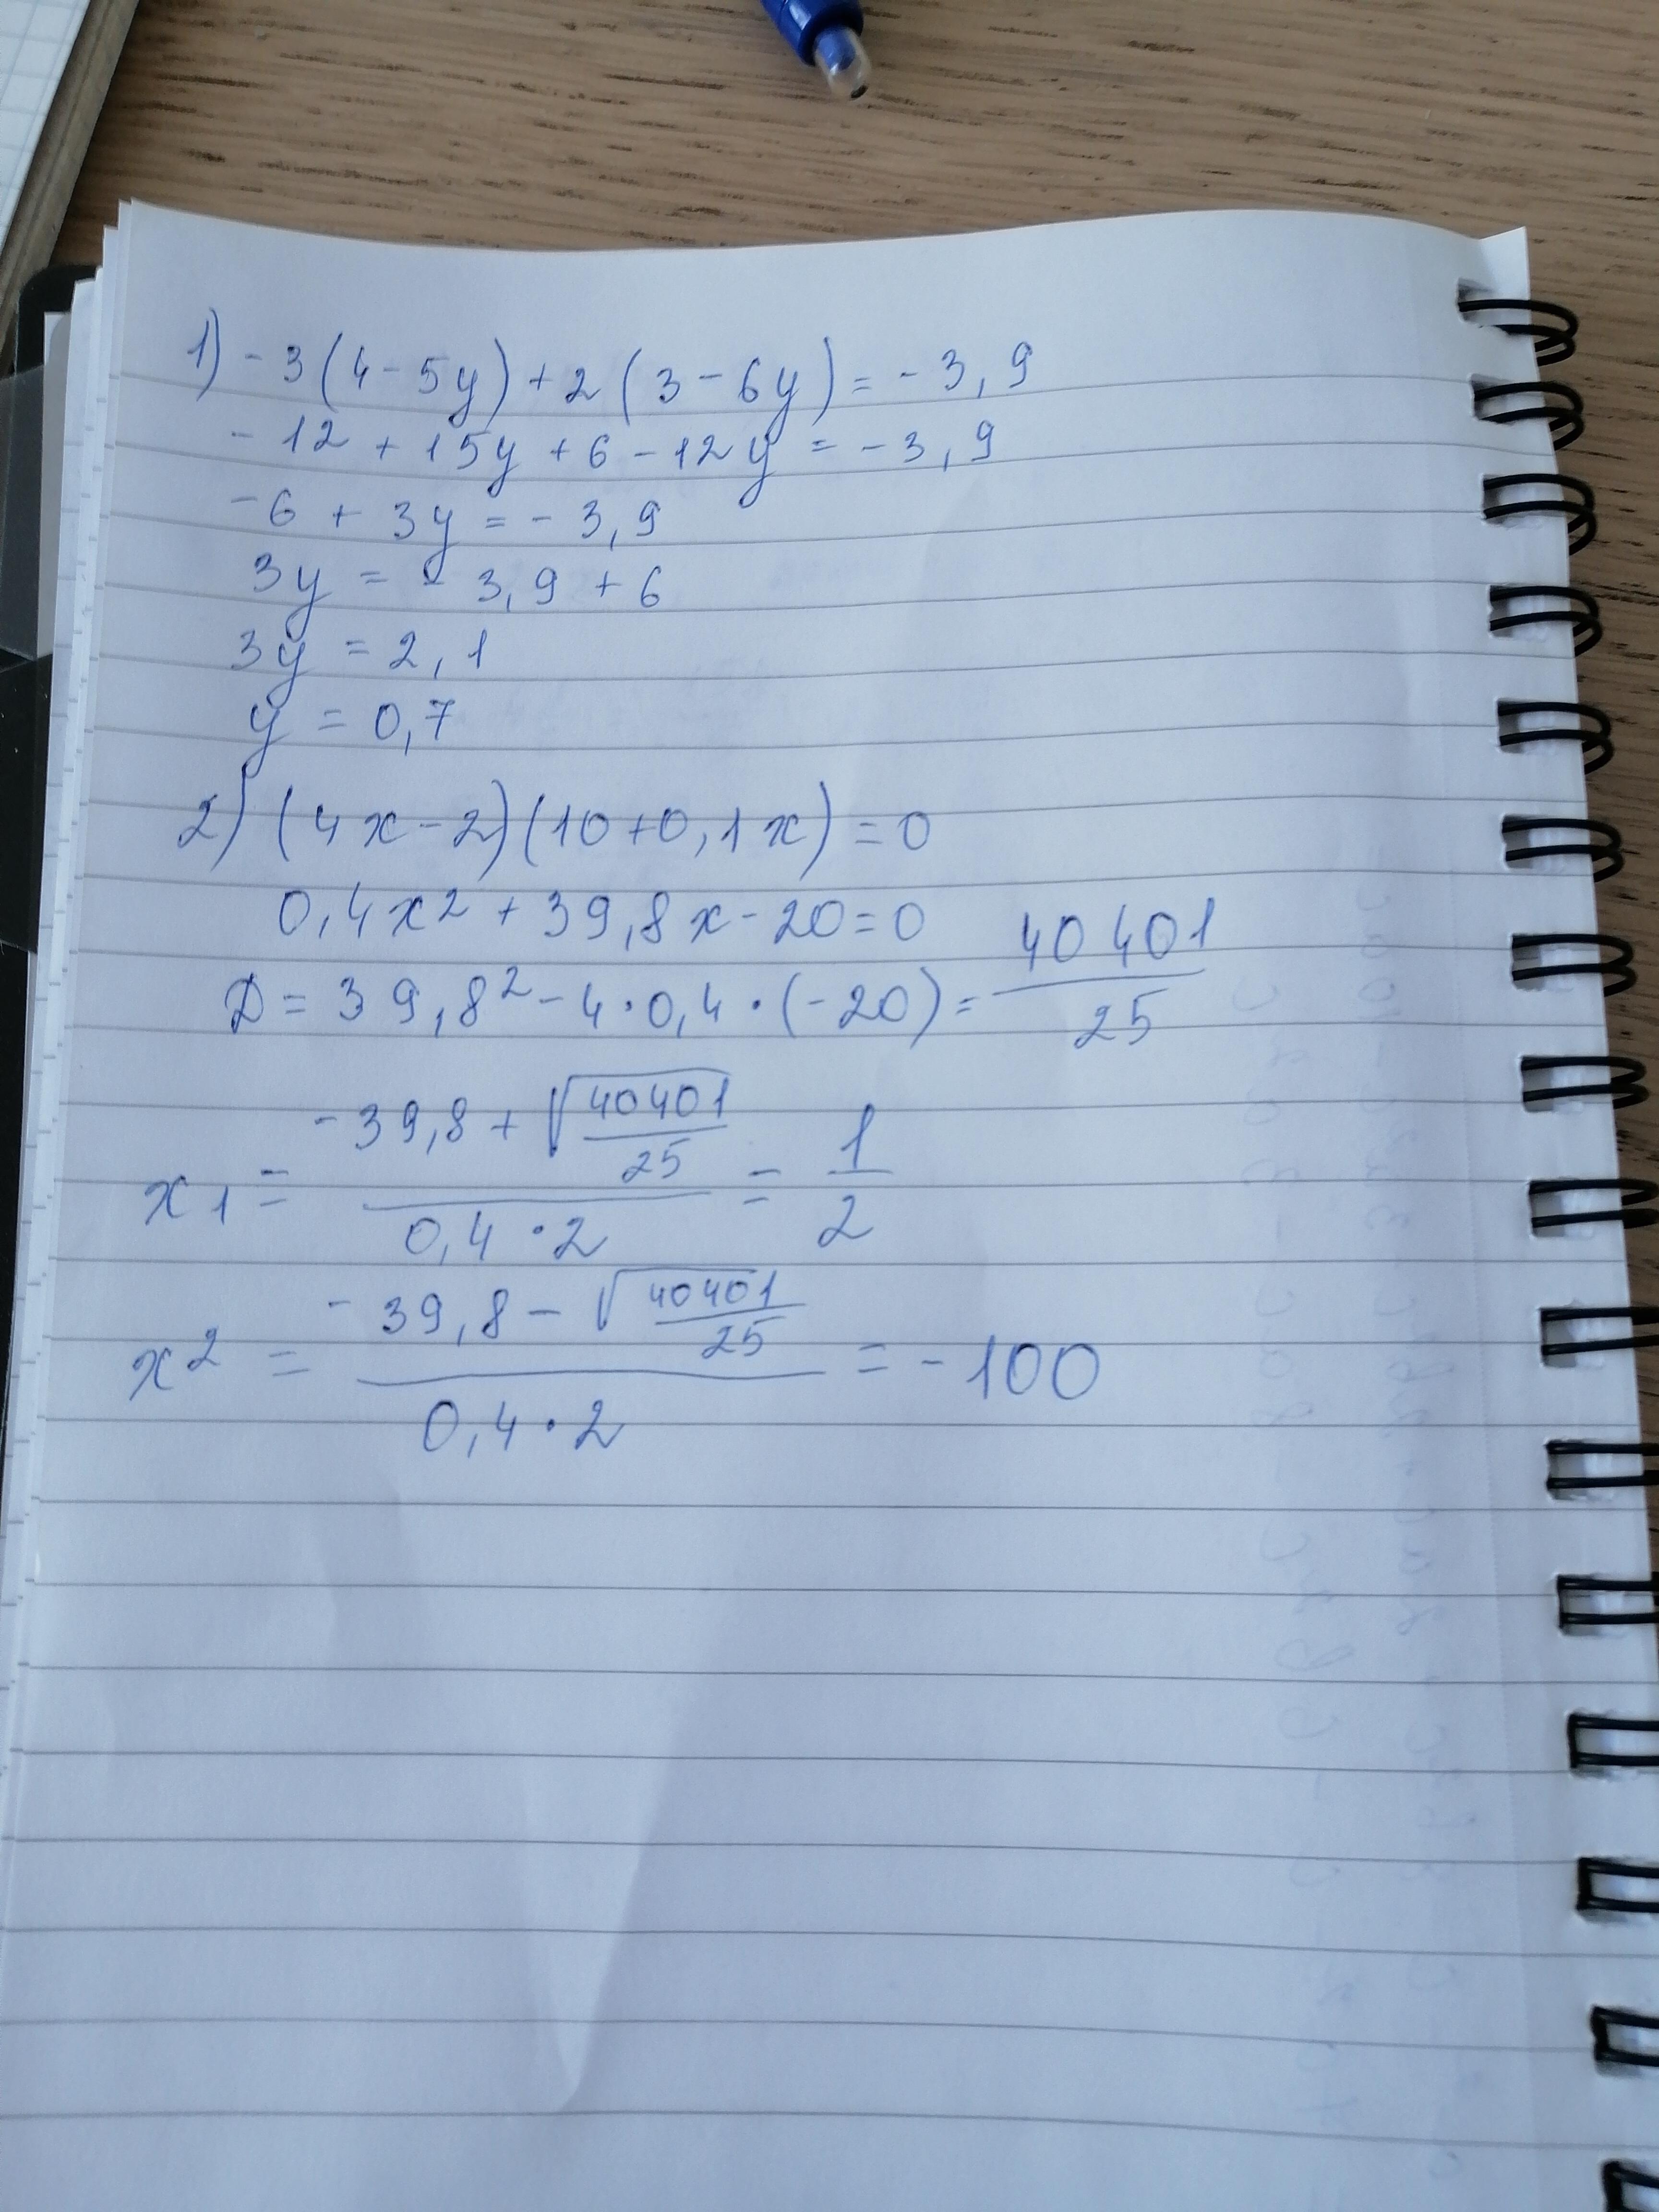 1) -3(4-5y)+2(3-6y)=-3,9
-12+15y+6-12y=-3,9
-6+3y=-3,9
3y=-3,9+6
3y=2,1
y=0,7
2) (4x-2)(10+0,1x)=0
0,4x²+39,8x-20=0
D=39,8²-4·0,4·(-20)=40401/25
x1=(-39,8+√(40401/25))/(0,4·2)=1/2
x2=(-39,8-√(40401/25))/(0,4·2)=-100